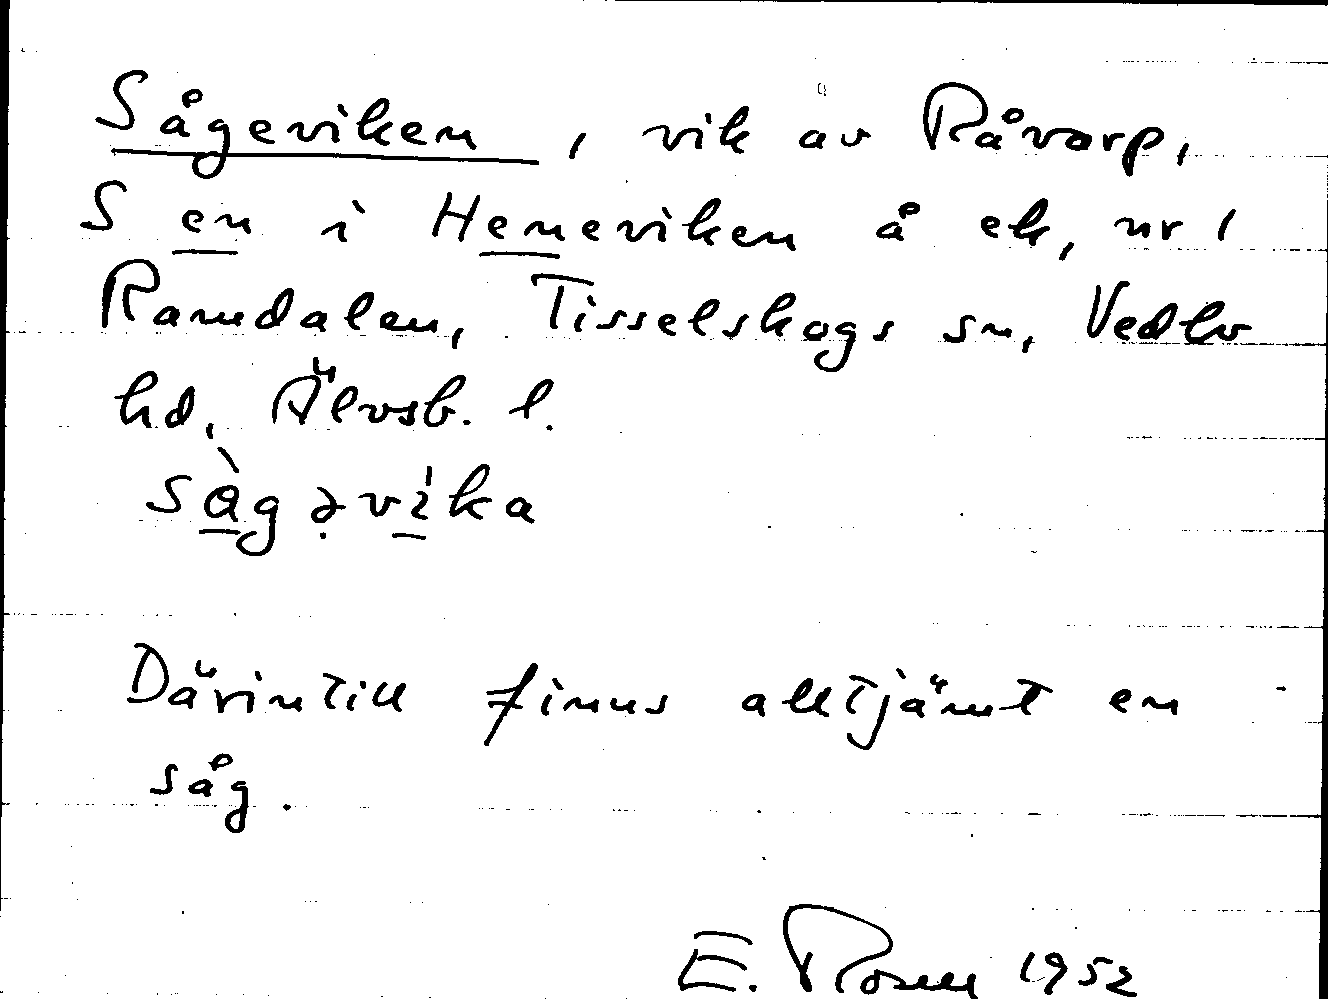 Sågeviken, vik av Råvarp,
S en i Hemeviken å ek, nr 1
Ramdalen, Tisselskogs sn, Vedbo
hd, Älvsb. l.
sàgəvika
Därintill finns alltjämt en
såg.
E. Rosell 1952